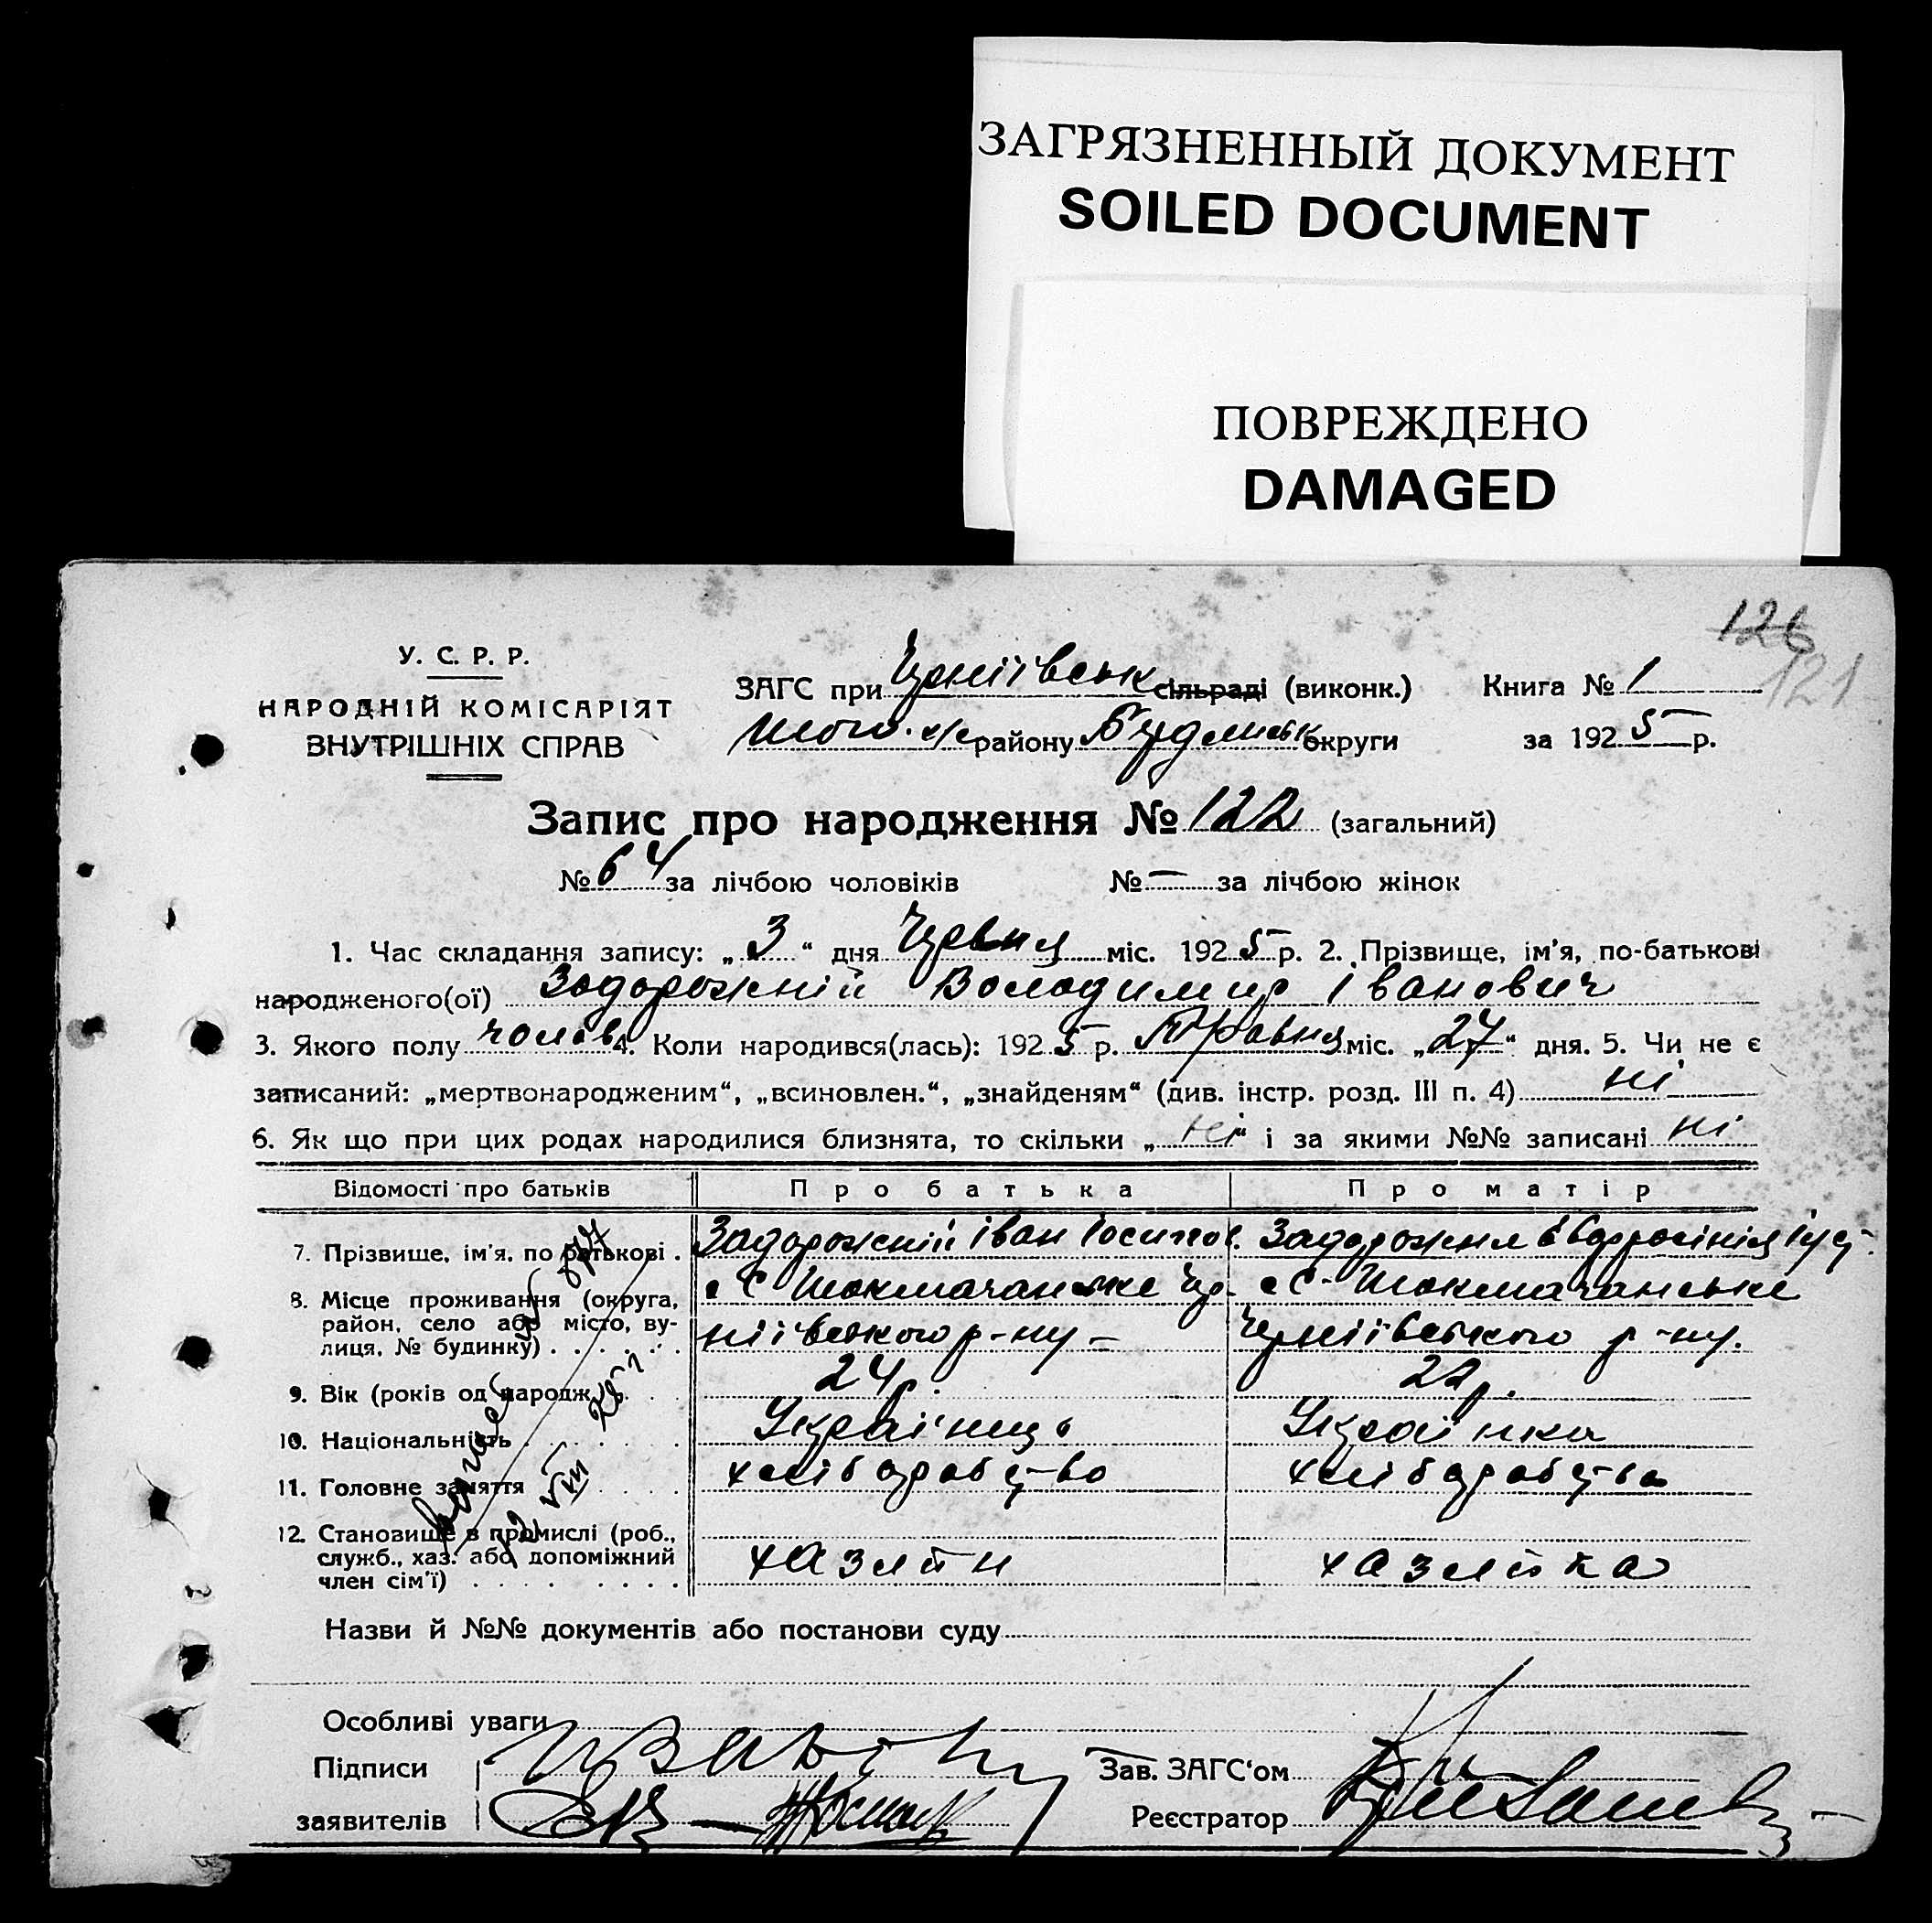 ЗАГРЯЗНЕННЫЙ ДОКУМЕНТ
SOILED DOCUMENT
ПОВРЕЖДЕНО
DAMAGED
126
121
У. С. Р. Р.
НАРОДНІЙ КОМІСАРІЯТ
ВНУТРІШНІХ СПРАВ
ЗАГС при Черніївськ сільраді (виконк.) Книга № 1
району округи за 1925 р.
Запис про народження № 122 (загальний)
№ 64 за лічбою чоловіків № — за лічбою жінок
1. Час складання запису: „ 3 “ дня Червня міс. 1925 р. 2. Прізвище, ім'я, по-батькові
народженого(ої) Задорожній Володимир Іванович
3. Якого полу чолов 4. Коли народився(лась): 1925 р. Травня міс. „ 27 “ дня. 5. Чи не є
записаний: „мертвонародженим“, „всиновлен.“, „знайденям“ (див. інстр. розд. III п. 4) ні
6. Як що при цих родах народилися близнята, то скільки „ ні “ і за якими №№ записані ні
Відомості про батьків Про батька Про матір
7. Прізвище, ім'я, по батькові . Задорожній Іван Іосипов. Задорожня
8. Місце проживання (округа, район, село або місто, вулиця, № будинку) . . . . . . с. Токмачанське Чер-ніївського р-ну – с. Токмачанське Черніївського р-ну.
9. Вік (років од народж.) . . . 24 р. 22 р.
10. Національність . . . . . . Українець Українка
11. Головне заняття . . . . . хліборобство хліборобство
12. Становище в промислі (роб., служб., хаз. або допоміжний член сім'ї) . . . . . . . . . хазяїн хазяйка
Назви й №№ документів або постанови суду
Особливі уваги
Підписи Зав. ЗАГС'ом
заявителів Реєстратор